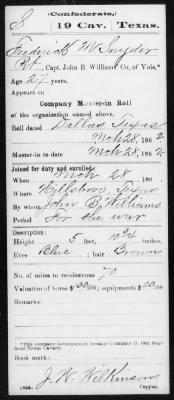 (Confederate.)
S 19 Cav. Texas.
Frederick W Snyder
Pt., Capt. John B. Williams' Co. of Vols,*
Age 27 years.
Appears on
Company Muster-in Roll
of the organization named above,
Roll dated Dallas, Texas
Mch 28, 1862.
Muster-in to date Mch 28, 1862.
Joined for duty and enrolled:
When Mch 28, 186 .
Where Hillsboro, Texas
By whom John B. Williams
Period For the war
Description:
Height 5 feet, 10¾ inches
Eyes Blue; hair Brown
No. of miles to rendezvous 70
Valuation of horse $ /100; equipments $20 /100
Remarks:
*This company subsequently became Company D, 19th Regiment Texas Cavalry.
Book mark:
J. W. Wilkinson
Copyist.